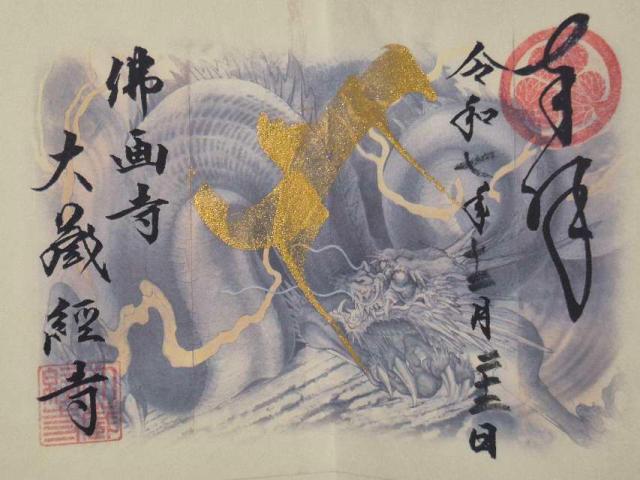 奉拝
令和七年十二月二十二日
佛画寺
大蔵經寺